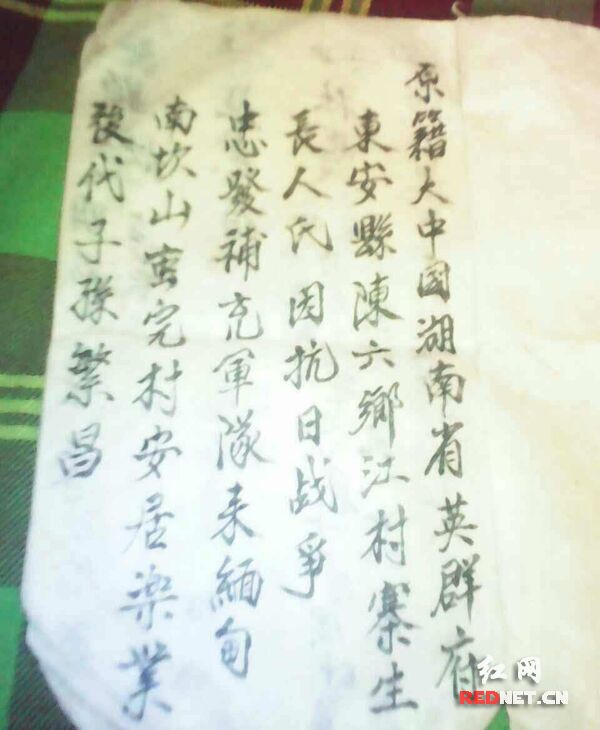 原籍大中國湖南省英群府
東安縣陳六鄉江村寨生
長人氏因抗日战爭
忠發補充軍隊来緬甸
南坎山蛮完村安居楽業
後代子孫繁昌
红网
REDNET.CN